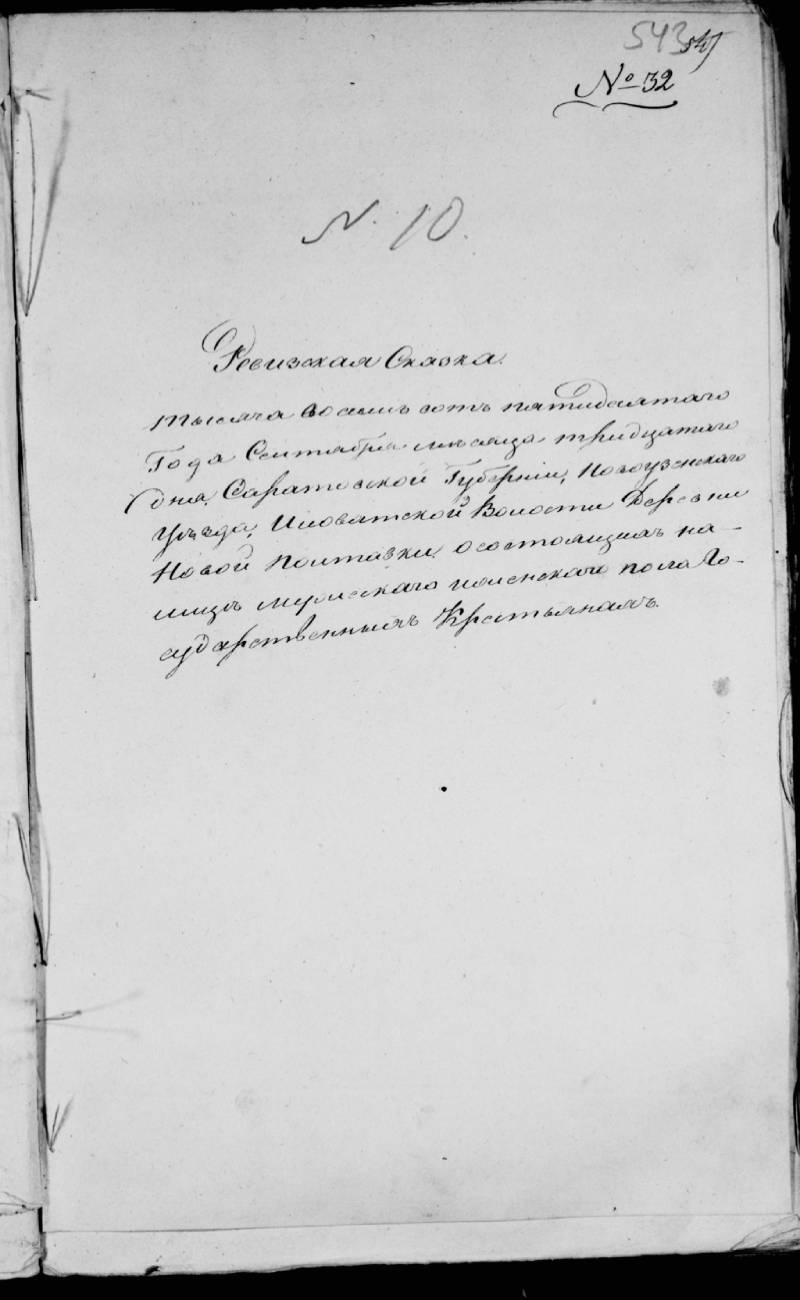 543 547
№ 32
N. 10.
Ревизская Сказка.
тысяча восемь сотъ пятидесятаго
Года Сентября месяца тридцатаго
дня, Саратовской Губерніи, Новоузенскаго
Уѣзда, Иловатской Волости Деревни
Новой Полтавки о состоящихъ на-
лицъ мужескаго и женскаго пола Го-
сударственныхъ Крестьянахъ.